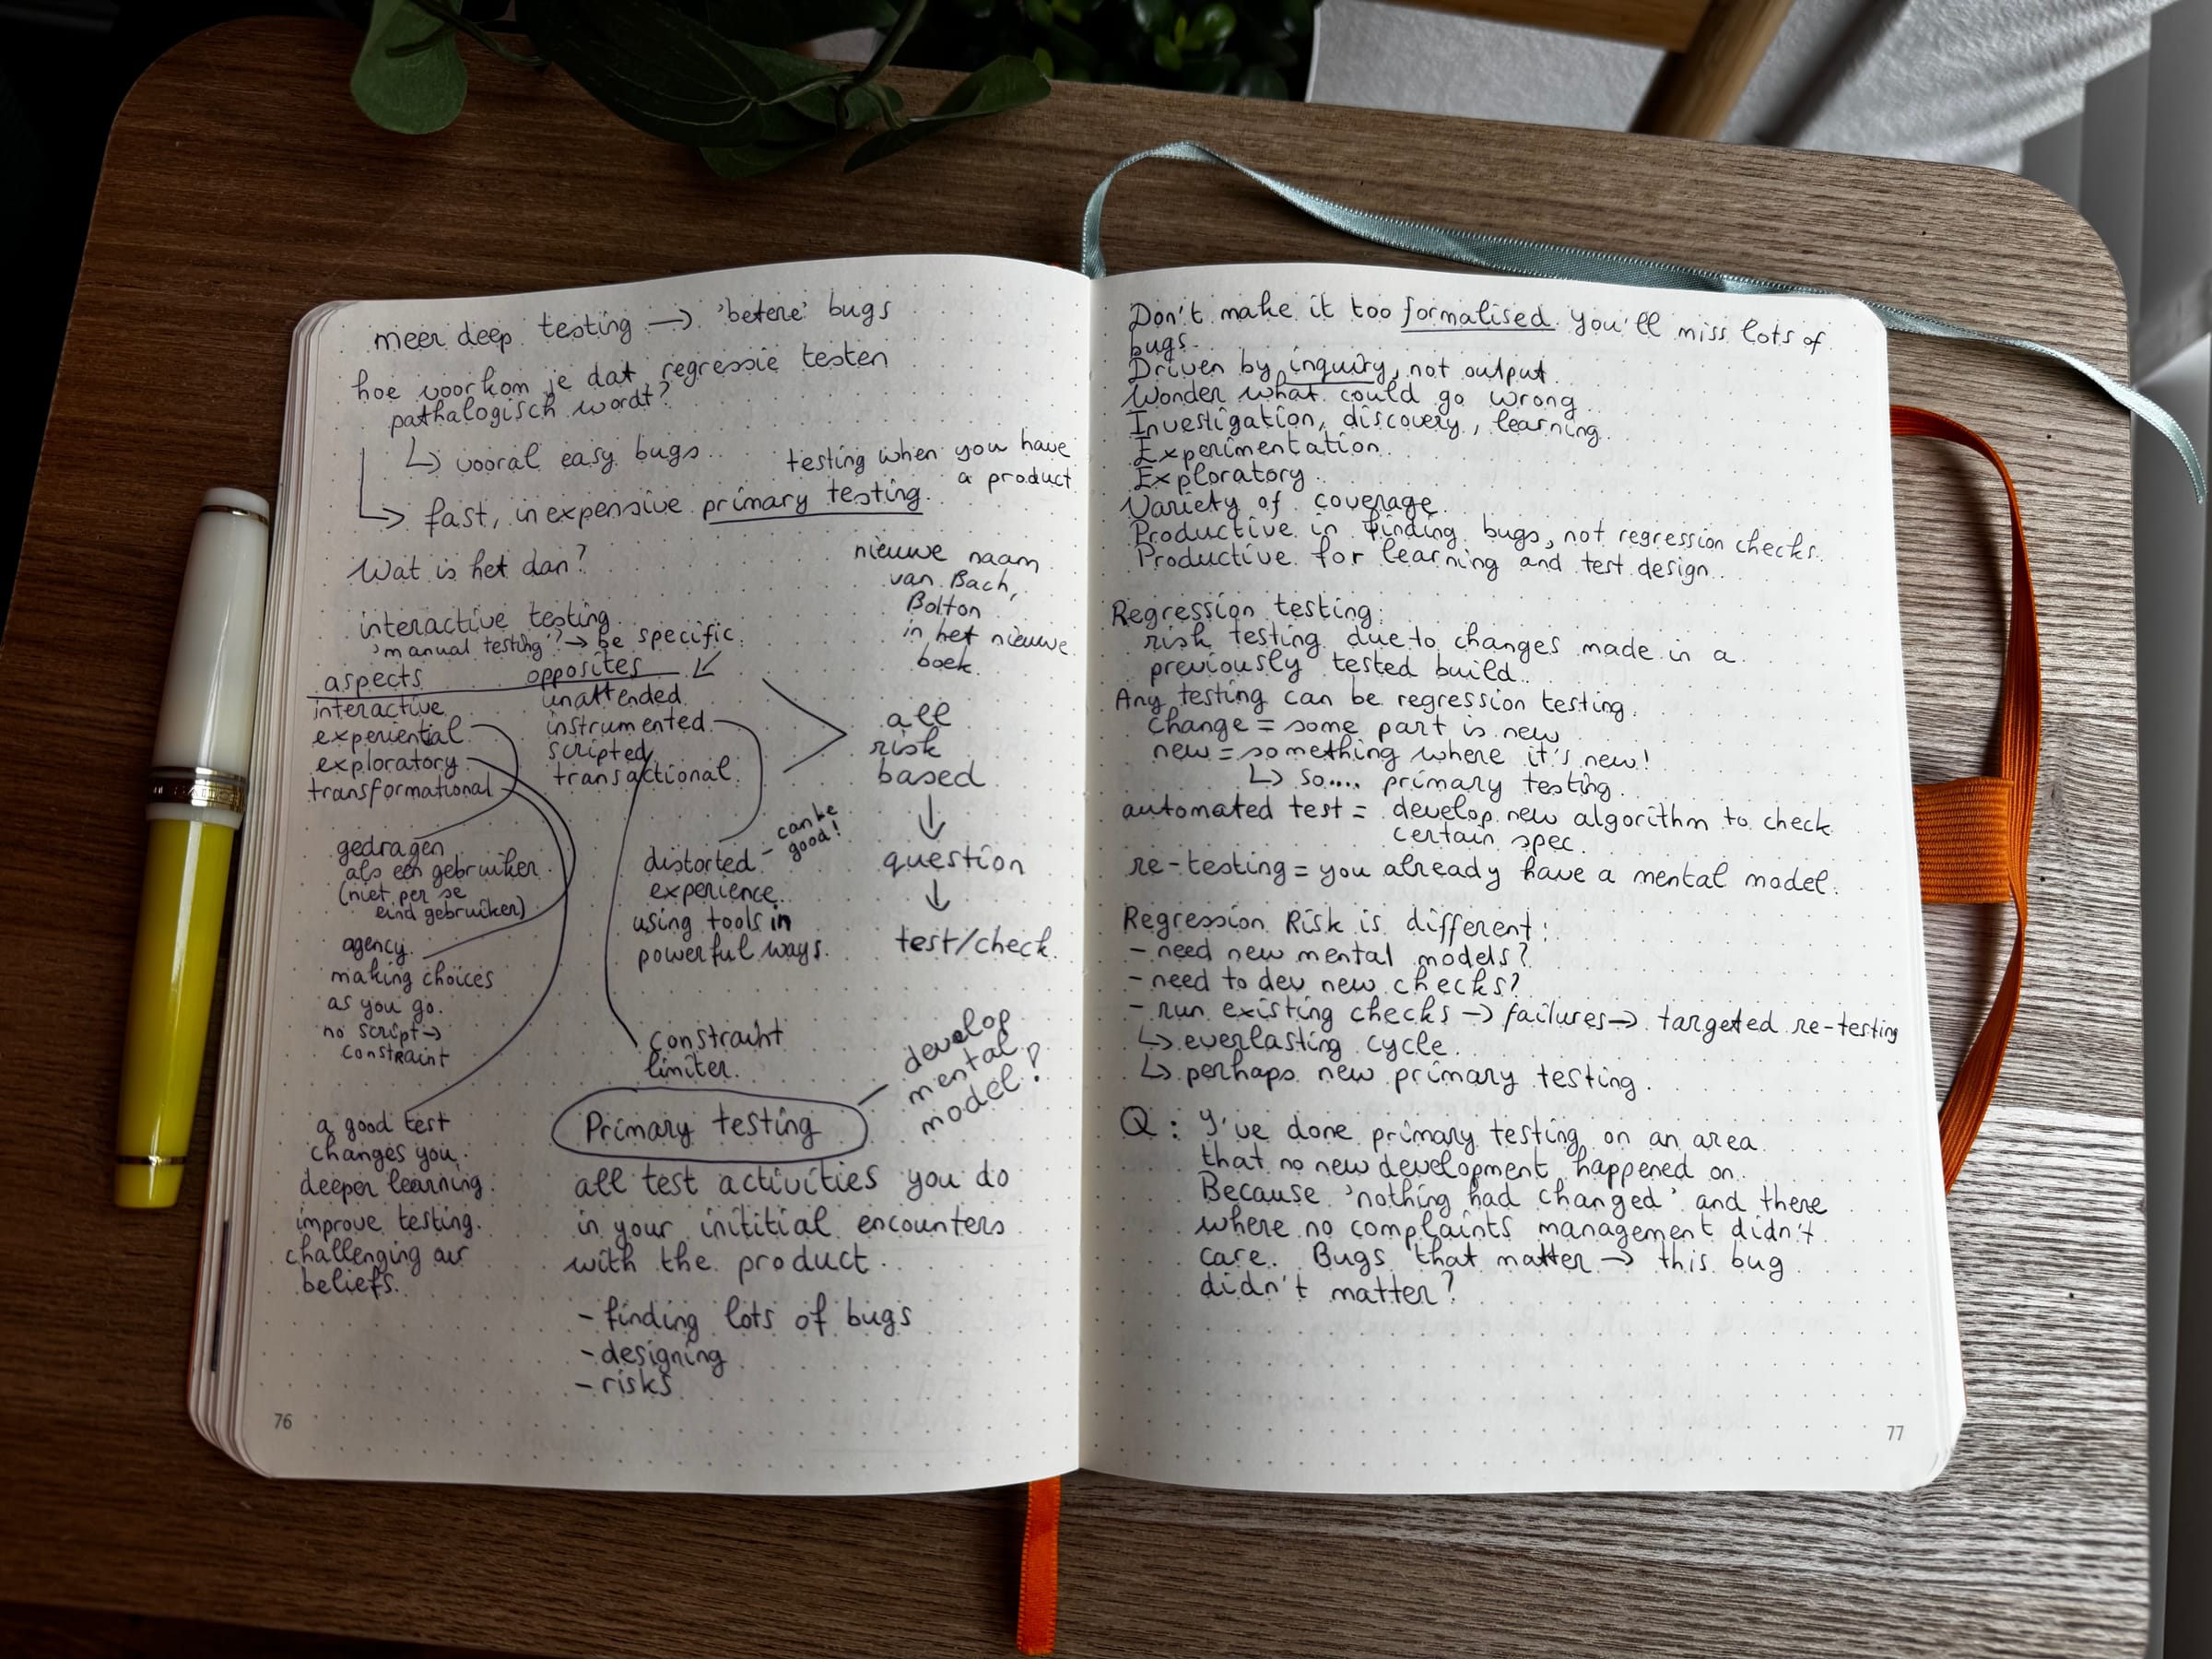 meer deep testing → 'betere' bugs
hoe voorkom je dat regressie testen
pathalogisch wordt?
↳ vooral easy bugs..
testing when you have
a product
↳ fast, inexpensive primary testing.
Wat is het dan?
nieuwe naam
van Bach,
Bolton
in het nieuwe
boek
interactive testing
'manual testing'? → be specific.
aspects opposites
interactive unattended
experiential instrumented
exploratory scripted
transformational transactional.
all
risk
based
↓
question
↓
test/check
gedragen
als een gebruiker
(niet per se
eind gebruiker)
agency.
making choices
as you go.
no script →
constraint
a good test
changes you.
deeper learning.
improve testing.
challenging our
beliefs.
distorted – can be
good!
experience
using tools in
powerful ways.
constraint
limiter.
Primary testing
develop
mental
model!
all test activities you do
in your inititial encounters
with the product.
- finding lots of bugs
- designing
- risks
76
Don't make it too formalised. You'll miss lots of
bugs.
Driven by inquiry, not output.
Wonder what could go wrong
Investigation, discovery, learning.
Experimentation.
Exploratory.
Variety of coverage.
Productive in finding bugs, not regression checks.
Productive for learning and test design.
Regression testing:
risk testing due to changes made in a
previously tested build.
Any testing can be regression testing.
change = some part is new
new = something where it's new!
↳ so.... primary testing.
automated test = develop new algorithm to check
certain spec.
re-testing = you already have a mental model.
Regression Risk is different:
- need new mental models?
- need to dev new checks?
- run existing checks → failures → targeted re-testing
↳ everlasting cycle.
↳ perhaps new primary testing.
Q: I've done primary testing on an area
that no new development happened on.
Because 'nothing had changed' and there
where no complaints management didn't
care. Bugs that matter → this bug
didn't matter?
77